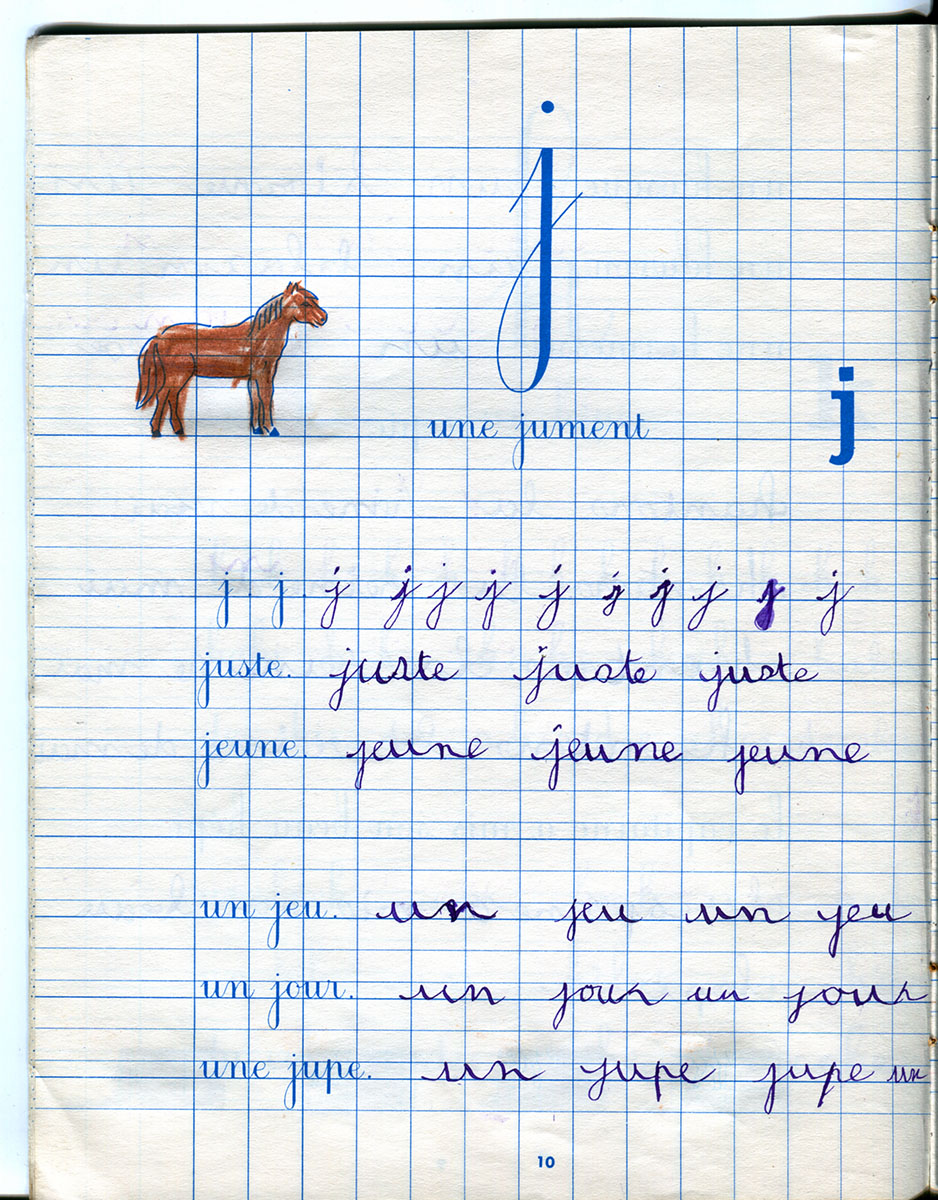 j
une jument
j
j j j j j j j j j j j j
juste. juste juste juste
jeune. jeune jeune jeune
un jeu. un jeu un jeu
un jour. un jour un jour
une jupe. un jupe jupe un
10